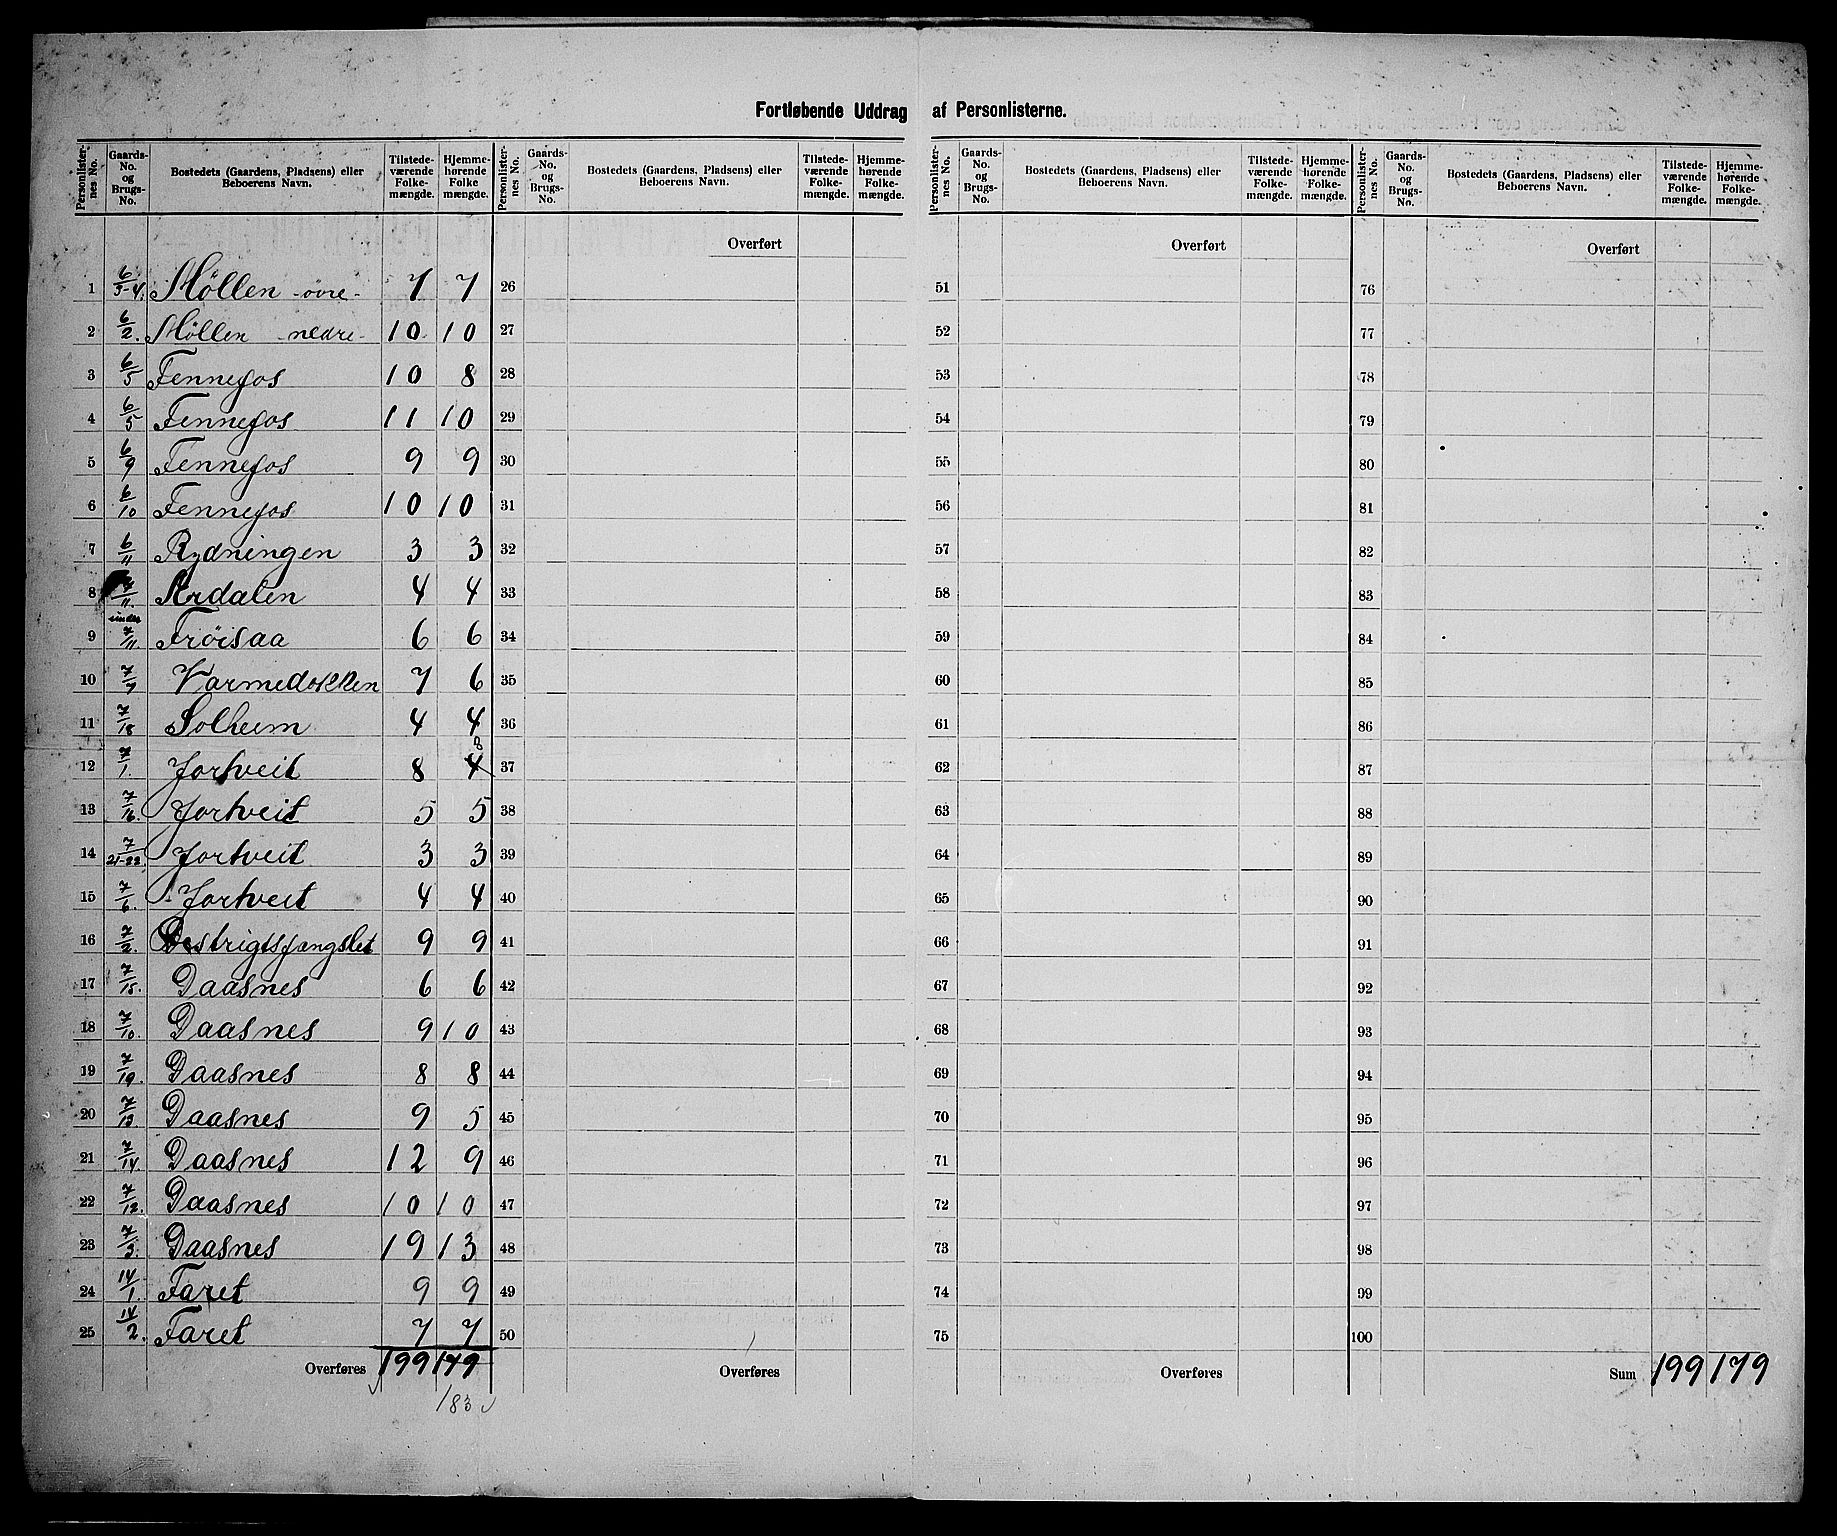 Fortløbende Uddrag af Personlisterne.
Personlister-nes No. | Gaards-No. og Brugs-No. | Bostedets (Gaardens, Pladsens) eller Beboerens Navn. | Tilstede-værende Folke-mængde. | Hjemme-hørende Folke mængde.
1 6/3-4. Møllen -øvre- 7 7
2 6/2. Møllen -nedre- 10 10
3 6/5 Fennefos 10 8
4 6/5 Fennefos 11 10
5 6/9 Fennefos 9 9
6 6/10 Fennefos 10 10
7 6/11 Rydningen 3 3
8 7/11. Ardalen 4 4
9 under 7/11. Frøisaa 6 6
10 7/7 Varmedokken 7 6
11 7/18 Solheim 4 4
12 7/1. Jortveit 8 4 8
13 7/16. Jortveit 5 5
14 7/21-22. Jortveit 3 3
15 7/6. Jortveit 4 4
16 7/2. Destrigtsfængslet 9 9
17 7/15. Daasnes 6 6
18 7/10. Daasnes 9 10
19 7/19. Daasnes 8 8
20 7/13. Daasnes 9 5
21 7/14. Daasnes 12 9
22 7/12. Daasnes 10 10
23 7/3. Daasnes 19 13
24 14/1. Faret 9 9
25 14/2. Faret 7 7
Overføres 199 179
183
Personlister-nes No. | Gaards-No. og Brugs-No. | Bostedets (Gaardens, Pladsens) eller Beboerens Navn. | Tilstede-værende Folke-mængde. | Hjemme-hørende Folke-mængde.
Overført
26
27
28
29
30
31
32
33
34
35
36
37
38
39
40
41
42
43
44
45
46
47
48
49
50
Overføres
Personlister-nes No. | Gaards-No. og Brugs-No. | Bostedets (Gaardens, Pladsens) eller Beboerens Navn. | Tilstede-værende Folke-mængde. | Hjemme-hørende Folke-mængde.
Overført
51
52
53
54
55
56
57
58
59
60
61
62
63
64
65
66
67
68
69
70
71
72
73
74
75
Overføres
Personlister-nes No. | Gaards-No. og Brugs-No. | Bostedets (Gaardens, Pladsens) eller Beboerens Navn. | Tilstede-værende Folke-mængde. | Hjemme-hørende Folke-mængde.
Overført
76
77
78
79
80
81
82
83
84
85
86
87
88
89
90
91
92
93
94
95
96
97
98
99
100
Sum 199 179